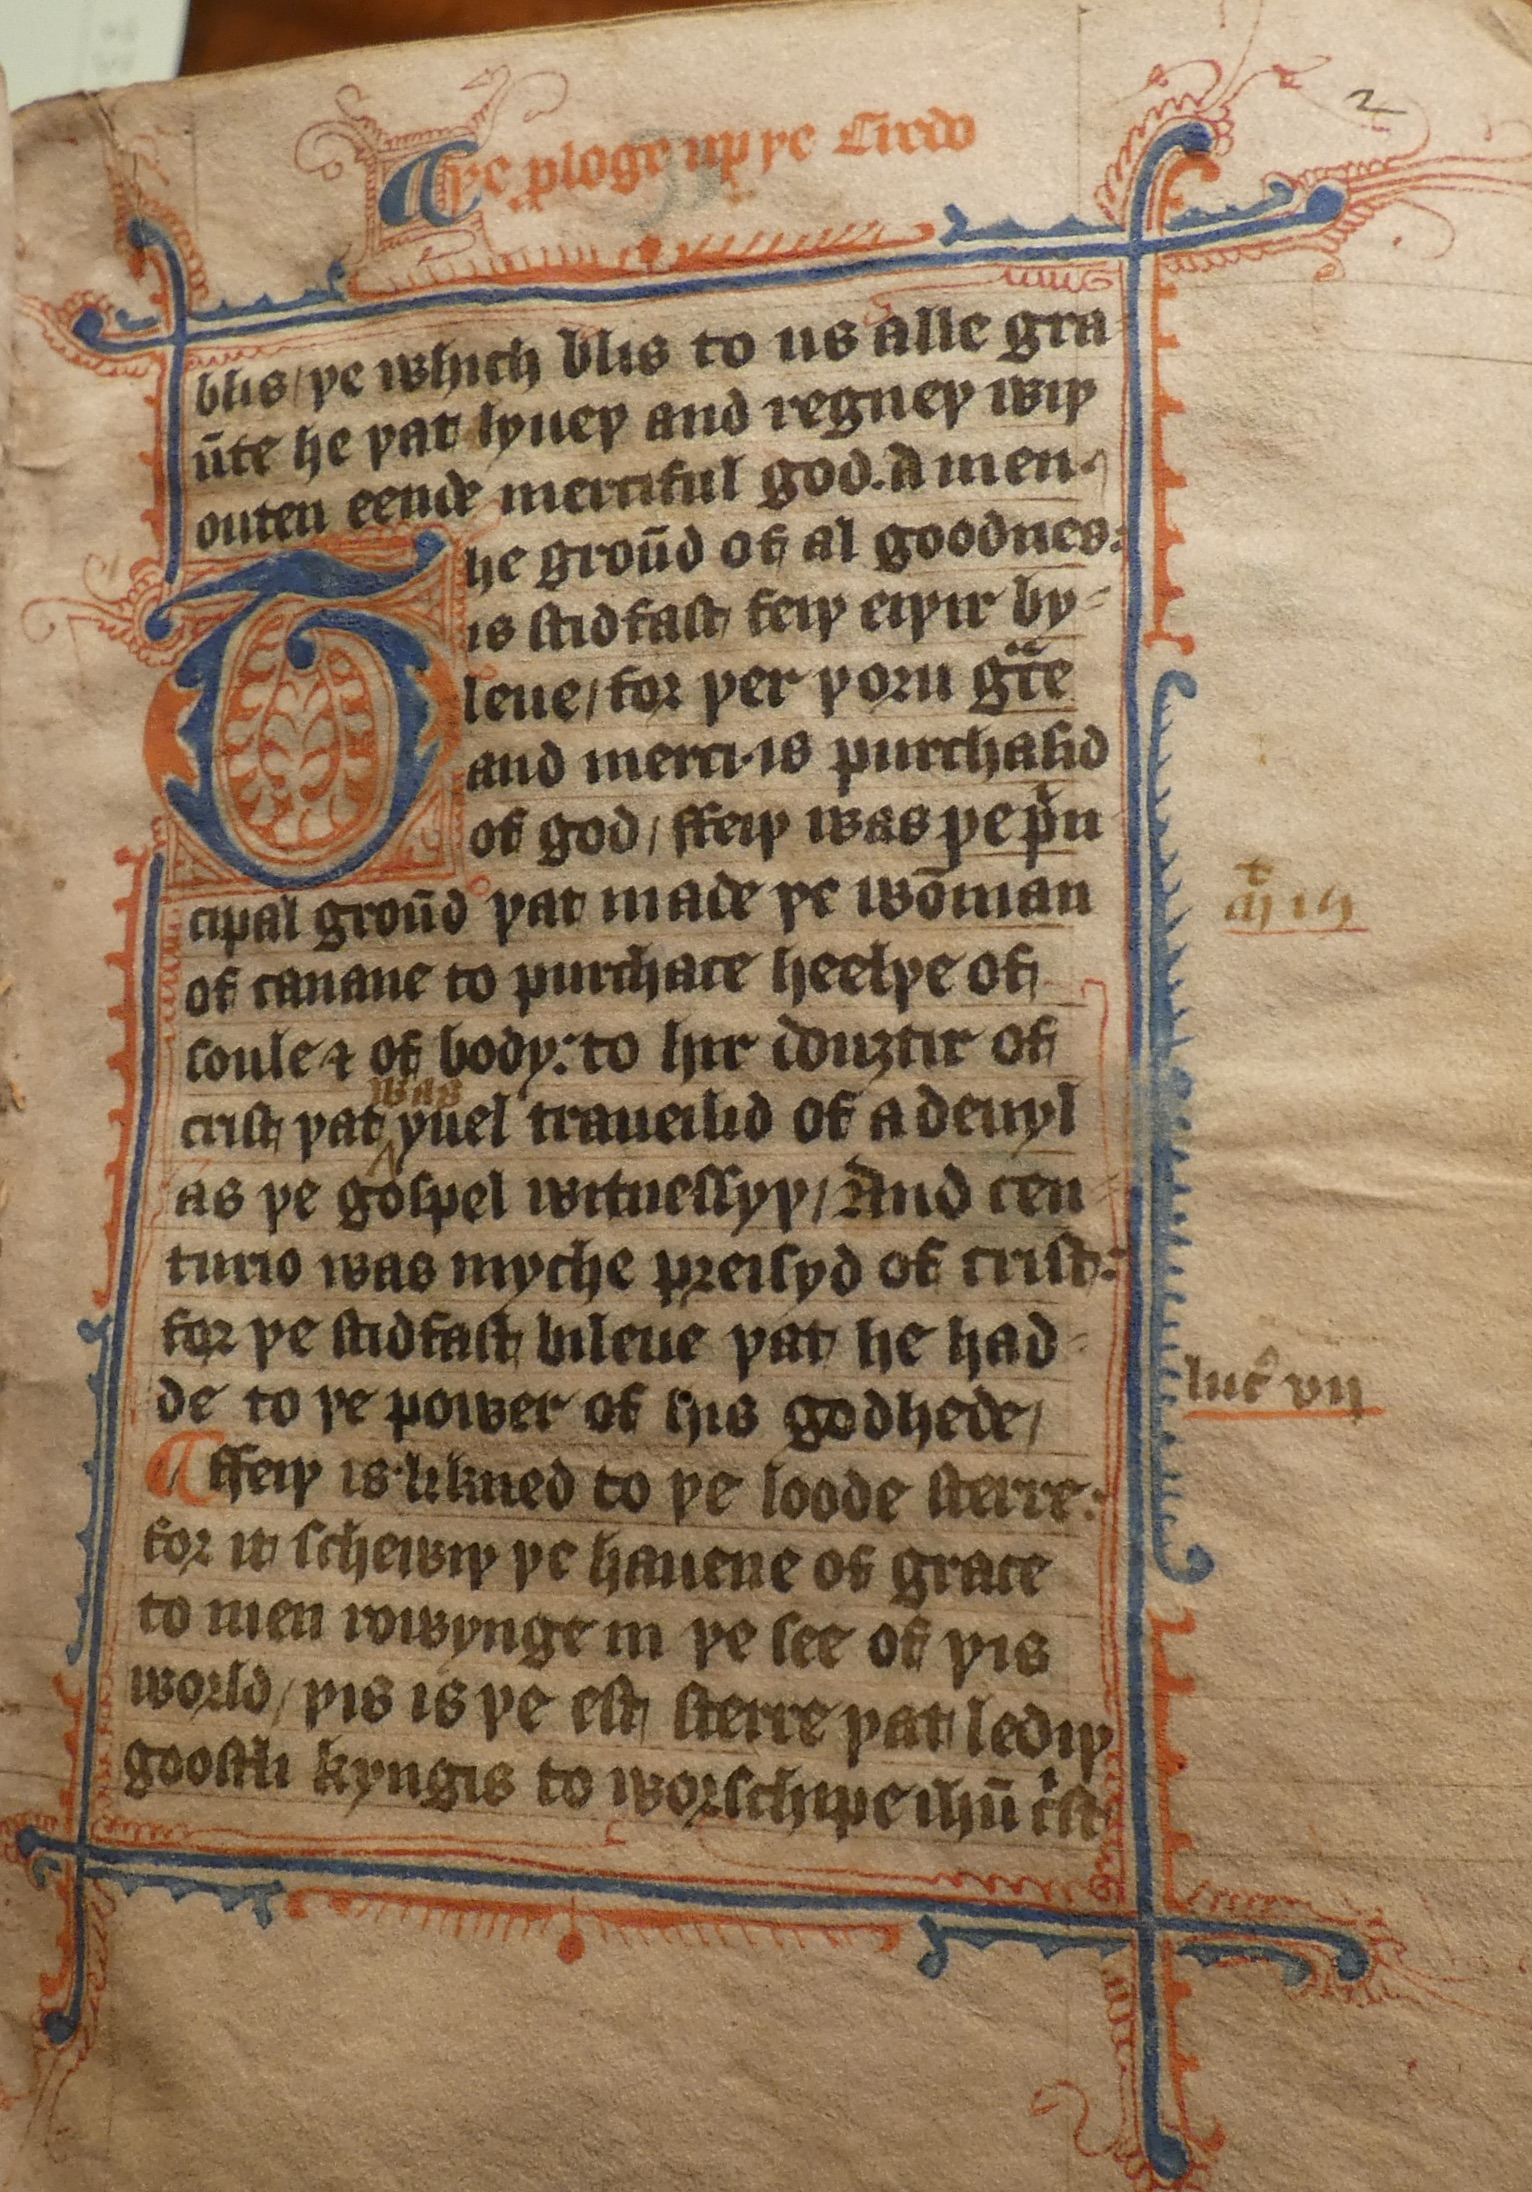 2
þe ploge upþe Credo
blis/ þe which blis to us alle gra
ūte he þat lyueþ and regneþ wiþ
outen eende merciful god. Amen.
The groūd of al goodnes:
is stidfast feiþ eiþir by⸗
leue/ for þer þoru gᵃce
and merci· is purchasid
of god/ ffeiþ was þe pⁱn
cipal groūd þat made þe wōman
of canane to purchace heelþe of
soule ⁊ of body: to hir douȝtir of
was
crist þat ^ yuel traueilid of a deuyl
as þe gospel witnessyþ/ And cen⸗
turio was myche preisyd of crist:
for þe stidfast bileue þat he had⸗
de to þe power of his godhede/
¶ ffeiþ is likned to þe loode sterre:
for it schewiþ þe hauene of grace
to men rowynge in þe see of þis
world/ þis is þe est sterre þat lediþ
goostli kyngis to worschipe ihū cⁱst
luc̉ vii